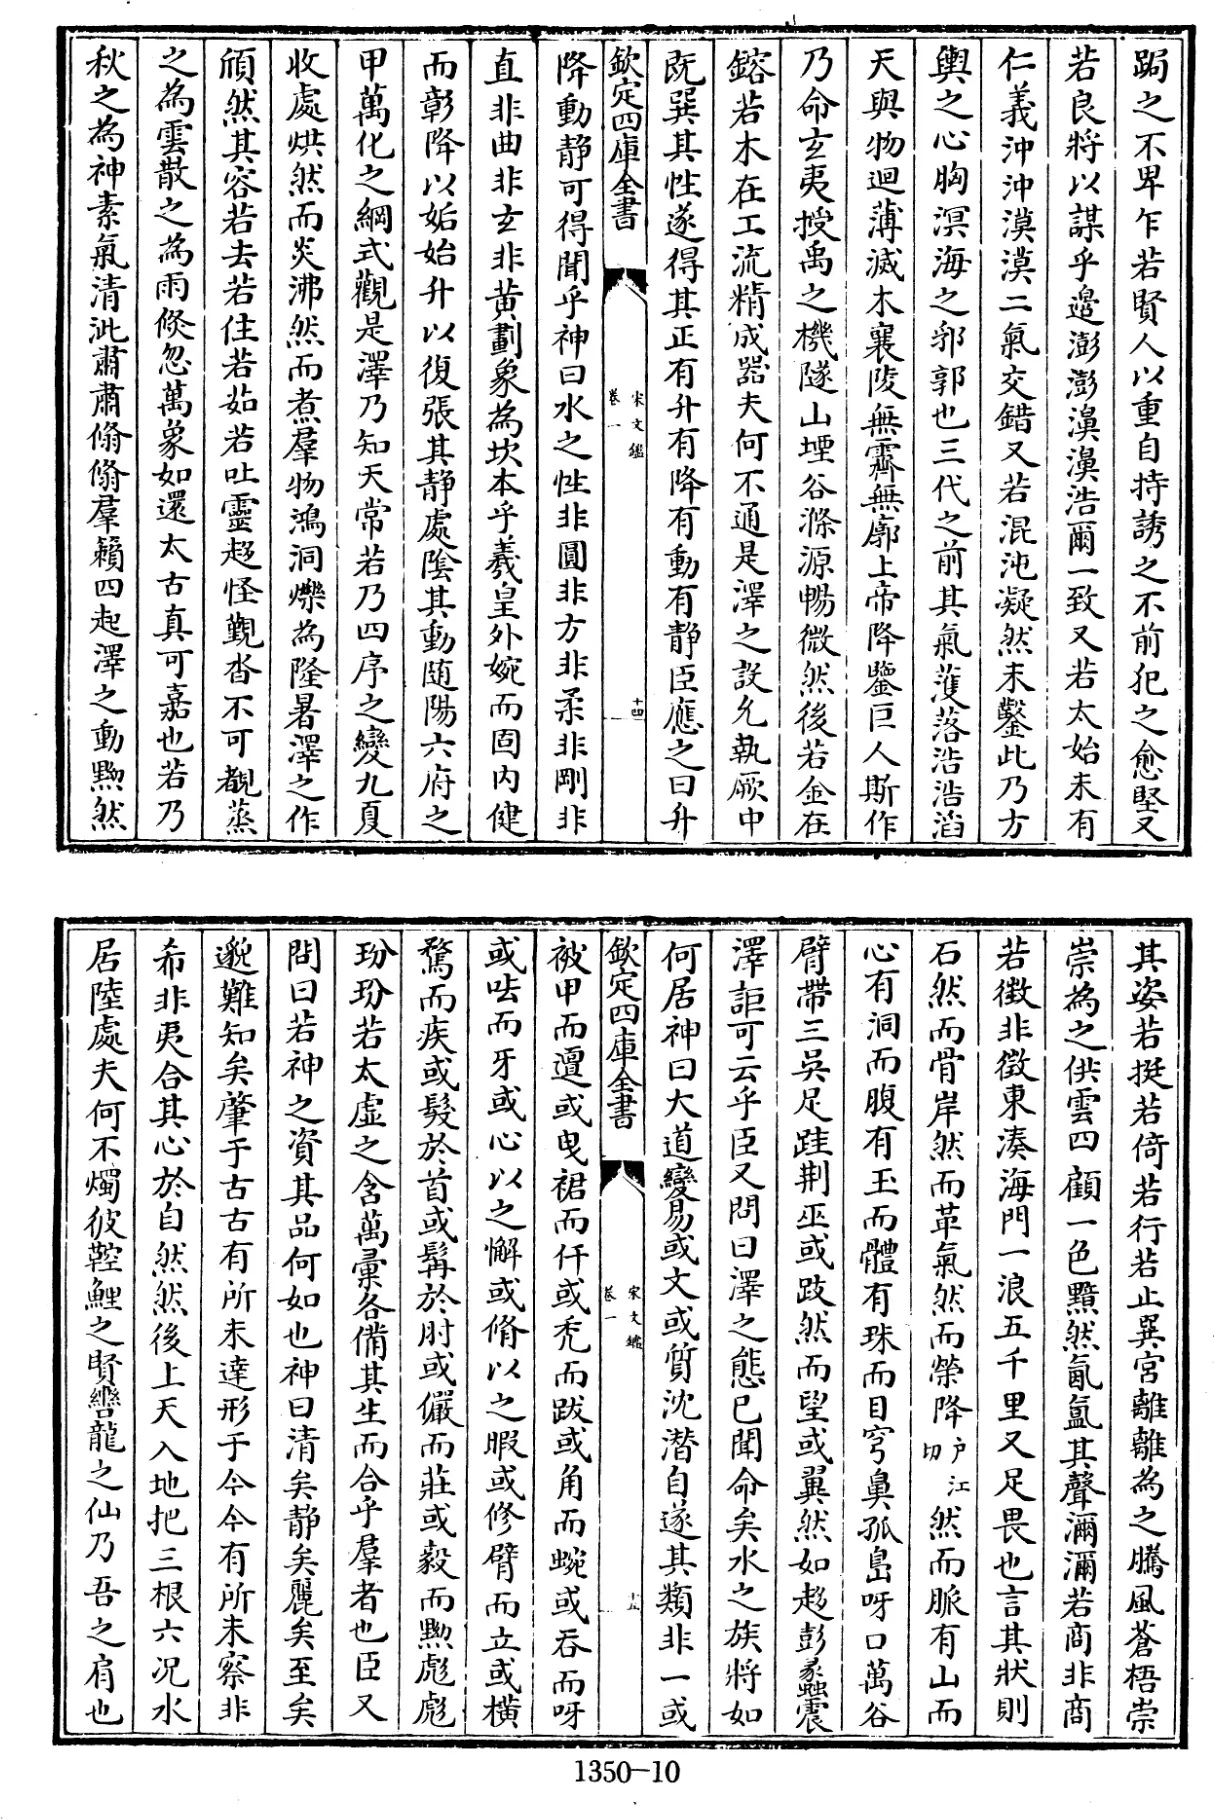 跼之不卑乍若賢人以重自持誘之不前犯之愈堅又
若良將以謀乎邊澎澎濞濞浩爾一致又若太始未有
仁義沖沖漠漠二氣交錯又若混沌凝然未鑿此乃方
輿之心胸溟海之郛郭也三代之前其氣濩落浩浩滔
天與物迴薄滅木襄陵無霽無廓上帝降鑒巨人斯作
乃命玄夷授禹之機隧山堙谷滌源暢微然後若金在
鎔若木在工流精成器夫何不通是澤之設允執厥中
既巽其性遂得其正有升有降有動有静臣應之曰升
欽定四庫全書
宋文鑑
卷一
十四
降動静可得聞乎神曰水之性非圓非方非柔非剛非
直非曲非玄非黄劃象為坎本乎羲皇外婉而固内健
而彰降以姤始升以復張其静處陰其動随陽六府之
甲萬化之綱式觀是澤乃知天常若乃四序之變九夏
收處烘然而炎沸然而煮羣物鴻洞爍為隆暑澤之作
頎然其容若去若住若茹若吐靈趍怪覲杳不可覩蒸
之為雲散之為雨倐忽萬象如還太古真可嘉也若乃
秋之為神素氣清泚肅肅翛翛羣籟四起澤之動黝然
其姿若挺若倚若行若止巽宮離離為之騰風蒼梧崇
崇為之供雲四顧一色黯然氤氳其聲瀰瀰若商非商
若徵非徵東湊海門一浪五千里又足畏也言其狀則
石然而骨岸然而革氣然而榮降户江切然而脈有山而
心有洞而腹有玉而體有珠而目穹鼻孤島呀口萬谷
臂帶三吳足跬荆巫或跂然而望或翼然如趍彭蠡震
澤詎可云乎臣又問曰澤之態已聞命矣水之族將如
何居神曰大道變易或文或質沈潜自遂其類非一或
欽定四庫全書
宋文鑑
卷一
十五
被甲而邅或曳裾而仟或禿而跋或角而蜿或吞而呀
或呿而牙或心以之懈或脩以之暇或修臂而立或横
騖而疾或髮於首或髯於肘或儼而莊或毅而黝彪彪
玢玢若太虚之含萬彙各備其生而合乎羣者也臣又
問曰若神之資其品何如也神曰清矣静矣麗矣至矣
邈難知矣肇于古古有所未達形于今今有所未察非
希非夷合其心於自然然後上天入地把三根六况水
居陸處夫何不燭彼鞚鯉之賢轡龍之仙乃吾之肩也
1350—10